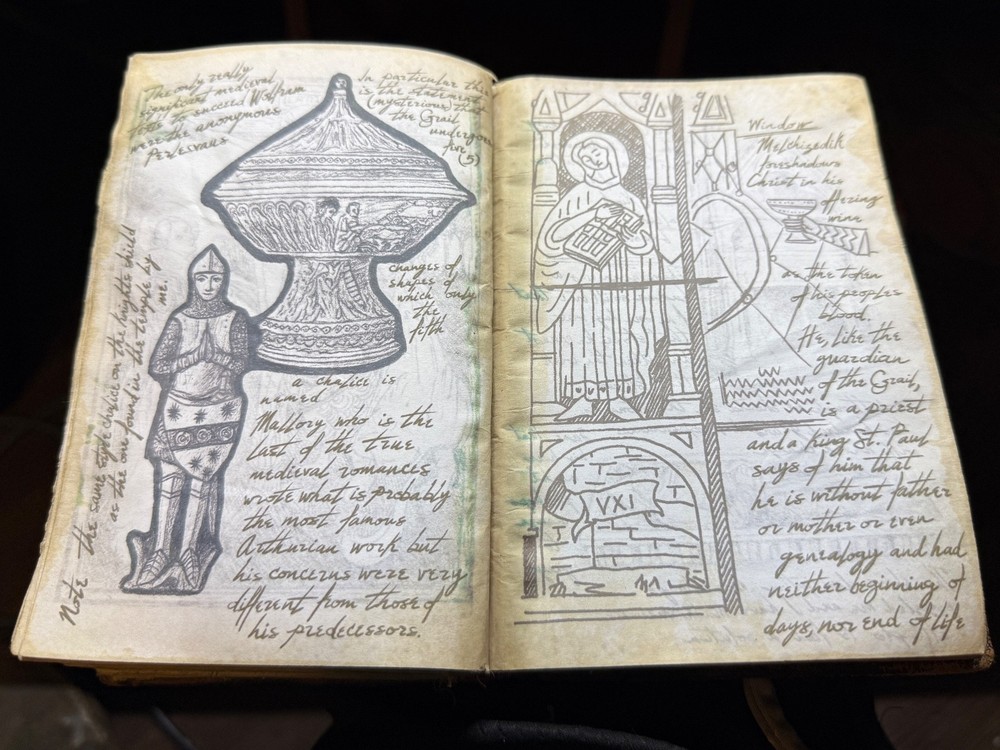 The only really
significant medieval
text to succeed Wolfram
were the anonymous
Perlesvaus
In particular this
is the statement
(mysterious) that
the Grail
undergoes
five (5)
changes of
shapes of
which only
the
fifth
a chalice is
named
Note the same type chalice on the knights shield
as the one found in the temple by
me.
Mallory who is the
last of the true
medieval romances
wrote what is probably
the most famous
Arthurian work but
his concerns were very
different from those of
his predecessors.
Window
Melchizedik
foreshadows
Christ in his
offering
wine
as the token
of his peoples
blood.
He, like the
guardian
of the Grail,
is a priest
and a king St. Paul
says of him that
he is without father
or mother or even
genealogy and had
neither beginning of
days, nor end of life
VXI